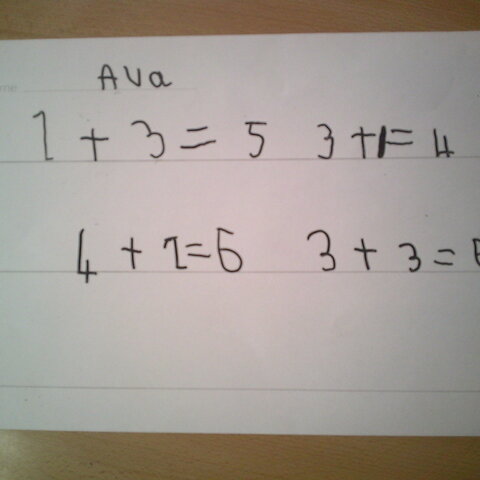 Ava
2 + 3 = 5 3 + 1 = 4
4 + 2 = 6 3 + 3 =